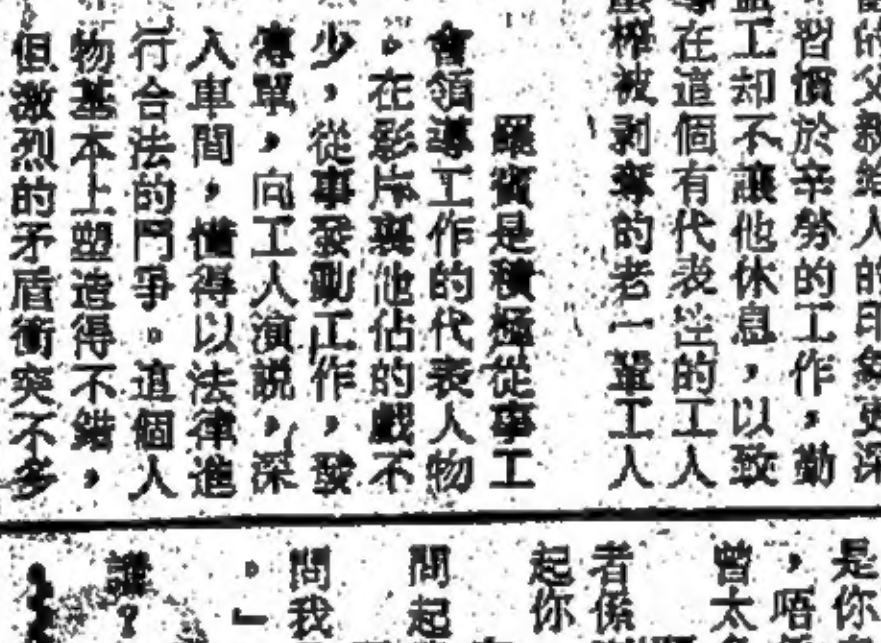 的父親給人的印象更深
習慣於辛勞的工作，勤
工却不讓他休息，以致
在這個有代表性的工人
榨被剥奪的老一輩工人
羅賓是積極從事工
會領導工作的代表人物
。在影片裏他佔的戲不
少，從事發動工作，發
傳單，向工人演說，深
入車間，懂得以法律進
行合法的鬥爭。這個人
物基本上塑造得不錯，
但激烈的矛盾衝突不多
是你
，唔
曾太
者係
起你
問起
問我
。』
誰？